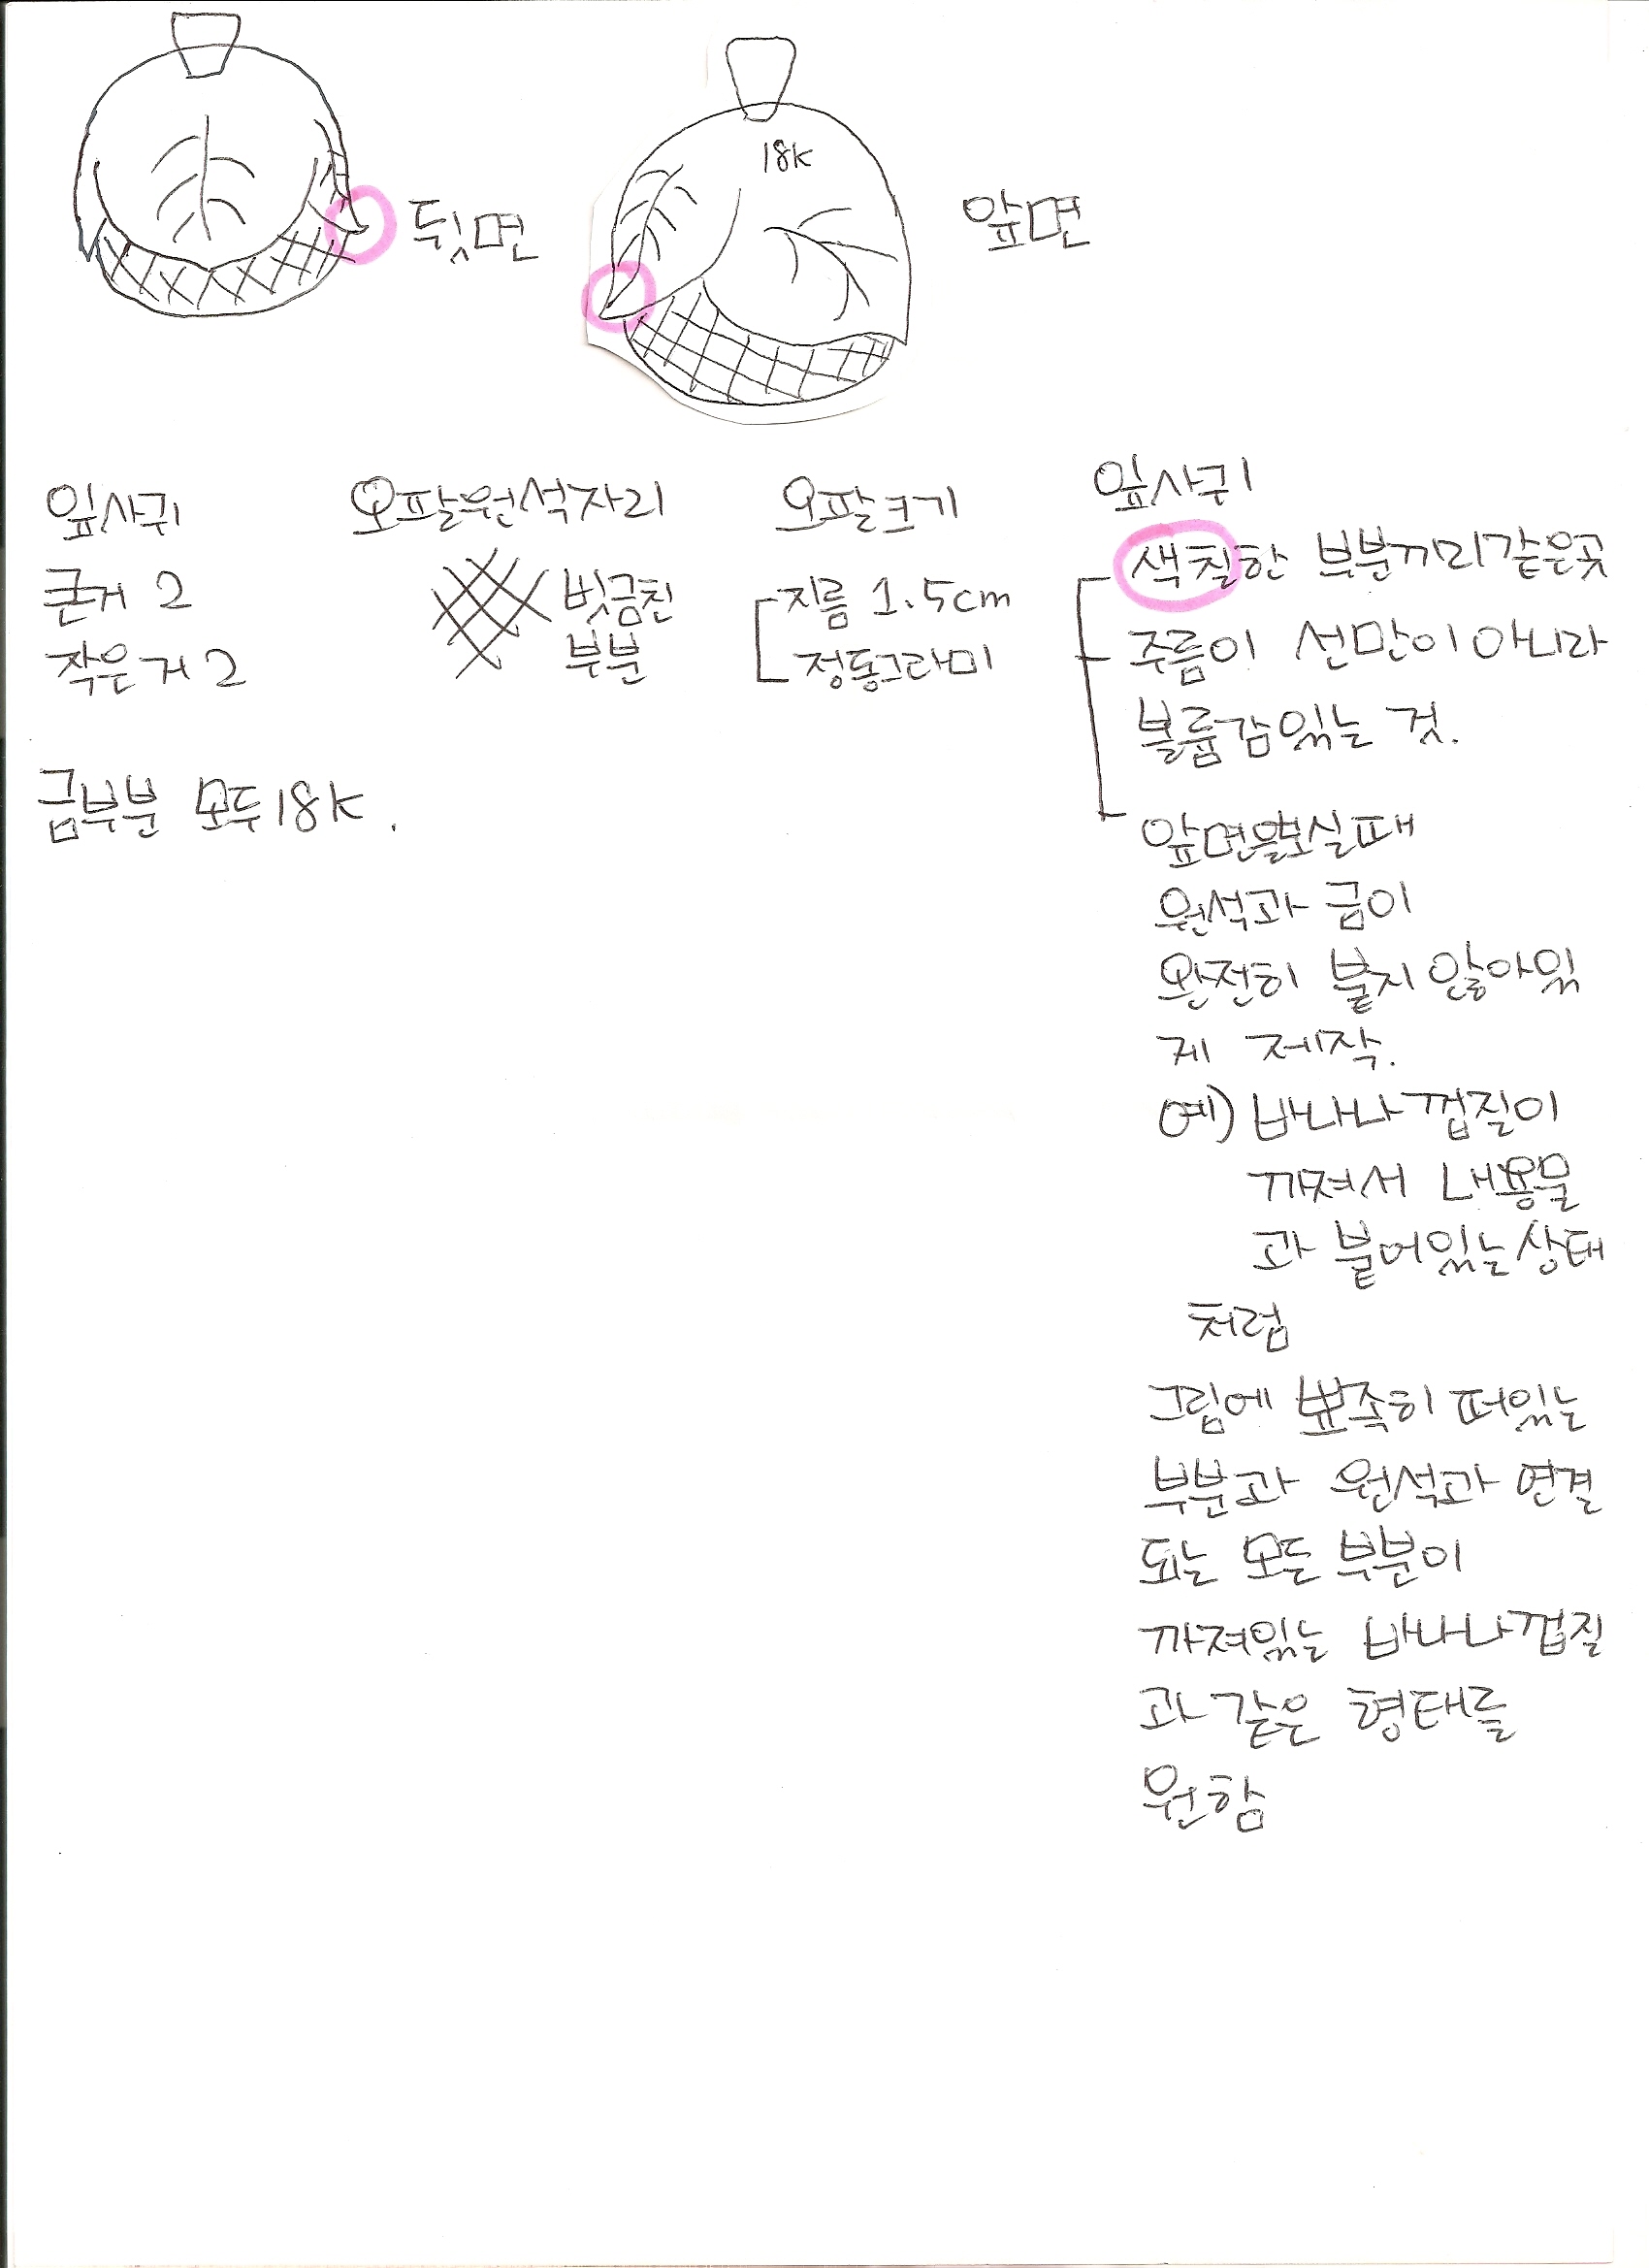 뒷면
18K
앞면
잎사귀
큰거 2
작은거 2
금부분 모두 18K.
오팔원석자리
빗금친
부분
오팔크기
지름 1.5cm
정동그라미
잎사귀
색칠한 부분끼리같은곳
주름이 선만이 아니라
볼륨감있는 것.
앞면을보실때
원석과 금이
완전히 붙지 않아있
게 제작.
예) 바나나껍질이
까져서 내용물
과 붙어있는상태
처럼
그림에 뾰족히 떠있는
부분과 원석과 연결
되는 모든 부분이
까져있는 바나나껍질
과 같은 형태를
원함